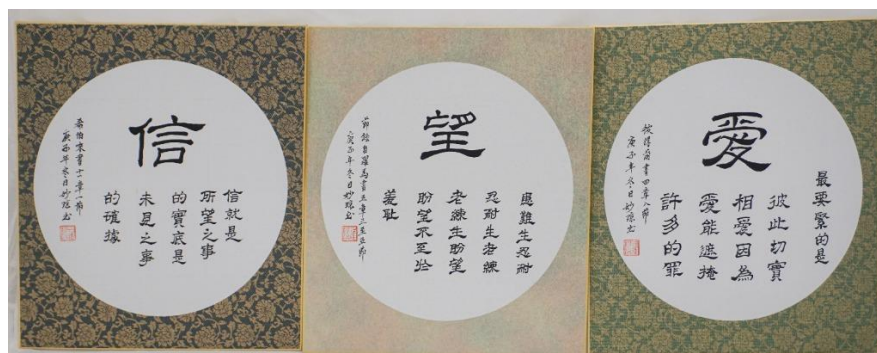 信
信就是
所望之事
的實底是
未見之事
的確據
希伯來書十一章一節
庚子年冬日妙
望
患難生忍耐
忍耐生老練
老練生盼望
盼望不至於
羞恥
節錄自羅馬書五章三至五節
庚子年冬日妙
愛
最要緊的是
彼此切實
相愛因為
愛能遮掩
許多的罪
彼得前書四章八節
庚子年冬日妙